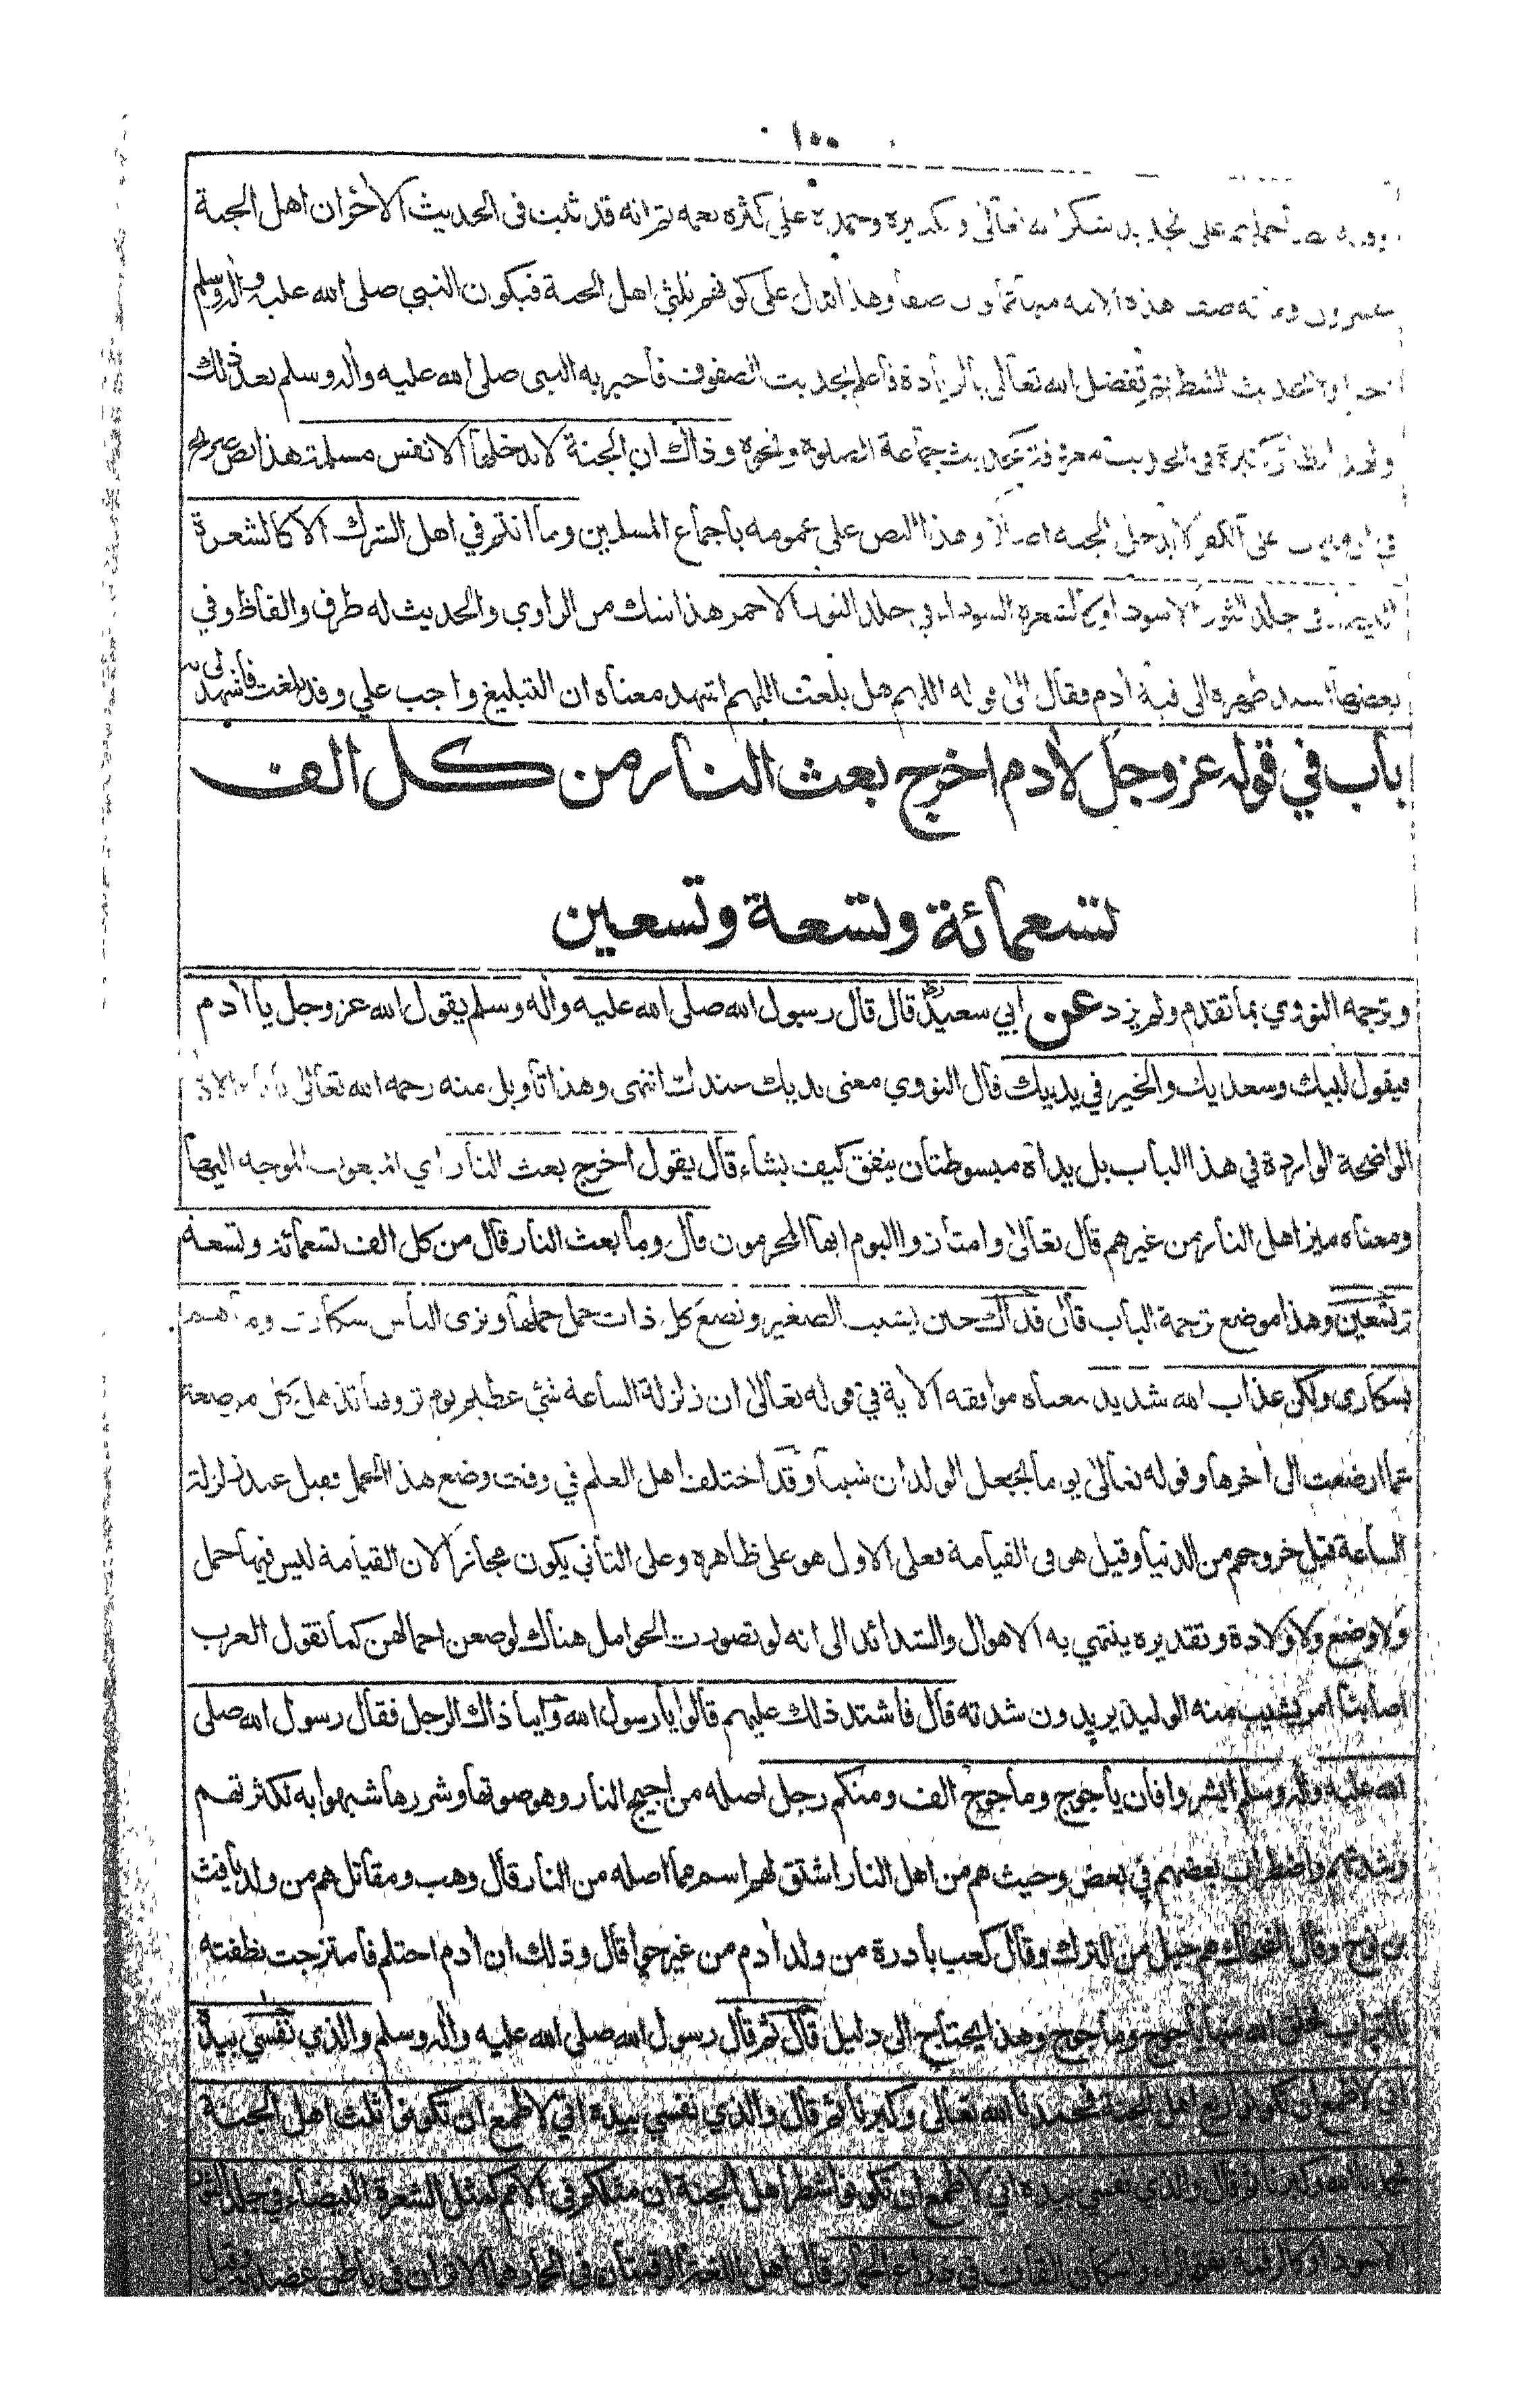 ١٠٠
حملهم على تجديد شكره تعالى وتكبيره وحمده على كثرة نعمه ثم انه قد ثبت في الحديث الأخر ان اهل الجنة
عشرون ومائة صف هذه الامة منها ثمانون صفا وهذا يدل على كونهم ثلثي اهل الجنة فيكون النبي صلى الله عليه وآله وسلم
بحديث الشطر ثم تفضل الله تعالى بالزيادة فاعلم بحديث الصفوف فأخبر به النبي صلى الله عليه وآله وسلم بعد ذلك
ولهذا نظائر كثيرة في الحديث معروفة كحديث جماعة الصلوة ونحوه وذاك ان الجنة لا يدخلها الا نفس مسلمة هذا نص صريح
في ان من مات على الكفر لا يدخل الجنة اصلا وهذا النص على عمومه بأجماع المسلمين وما انتم في اهل الشرك الا كالشعرة
البيضاء في جلد الثور الاسود او كالشعرة السوداء في جلد الثور الاحمر هذا شك من الراوي والحديث له طرف والفاظ وفي
بعضها اسند ظهره الى قبة أدم فقال الى قوله اللهم هل بلغت اللهم اشهد معناه ان التبليغ واجب علي وقد بلغت فأشهد لي به
باب في قوله عز وجل لأدم اخرج بعث النار من كل الف
تسعمائة وتسعة وتسعين
وترجمه النووي بما تقدم ولم يزد عن أبي سعيد رض قال قال رسول الله صلى الله عليه وأله وسلم يقول الله عز وجل يا أدم
فيقول لبيك وسعديك والخير في يديك قال النووي معنى يديك عندك انتهى وهذا تأويل منه رحمه الله تعالى
الواضحة الواردة في هذا الباب بل يداه مبسوطتان ينفق كيف يشاء قال يقول اخرج بعث النار اي المبعوث الموجه اليها
ومعناه ميز اهل النار من غيرهم قال تعالى وامتازوا اليوم ايها المجرمون قال وما بعث النار قال من كل الف تسعمائة وتسعة
وتسعين وهذا موضع ترجمة الباب قال فذاك حين يشيب الصغير وتضع كل ذات حمل حملها وترى الناس سكارى وما هم
بسكارى ولكن عذاب الله شديد معناه موافقه الأية في قوله تعالى ان زلزلة الساعة شئ عظيم يوم ترونها تذهل كل مرضعة
عما ارضعت الى أخرها وقوله تعالى يوما يجعل الولدان شيبا وقد اختلف اهل العلم في وقت وضع هذا الحمل فقيل عند زلزلة
الساعة قبل خروجهم من الدنيا وقيل هو في القيامة فعلى الاول هو على ظاهره وعلى الثاني يكون مجازا لان القيامة ليس فيها حمل
ولا وضع ولا ولادة وتقديره ينتهي به الاهوال والشدائد الى انه لو تصورت الحوامل هناك لوضعن احمالهن كما تقول العرب
اصابنا امر يشيب منه الوليد يريدون شدته قال فأشتد ذلك عليهم قالوا يا رسول الله وأينا ذاك الرجل فقال رسول الله صلى
الله عليه وأله وسلم ابشروا فأن يأجوج ومأجوج الف ومنكم رجل اصله من اجيج النار وهو صوتها وشررها شبهوا به لكثرتهم
وشدتهم واضطراب بعضهم في بعض وحيث هم من اهل النار اشتق لهم اسم مما اصله من النار قال وهب ومقاتل هم من ولد يافث
بن نوح وقال الضحاك هم جيل من الترك وقال كعب بأدرة من ولد أدم من غير حوا قال وذلك ان أدم احتلم فأمتزجت نطفته
بالتراب فخلق الله منها يأجوج ومأجوج وهذا يحتاج الى دليل قال ثم قال رسول الله صلى الله عليه وأله وسلم والذي نفسي بيده
اني لاطمع ان تكونوا ربع اهل الجنة فحمدنا الله تعالى وكبرنا ثم قال والذي نفسي بيده اني لاطمع ان تكونوا ثلث اهل الجنة
فحمدنا الله وكبرنا ثم قال والذي نفسي بيده اني لاطمع ان تكونوا شطر اهل الجنة ان مثلكم في الامم كمثل الشعرة البيضاء في جلد الثور
الاسود او كالرقمة بفتح الراء واسكان القاف في ذراع الحمار قال اهل اللغة الرقمتان في الحمار هما الاثران في باطن عضديه وقيل